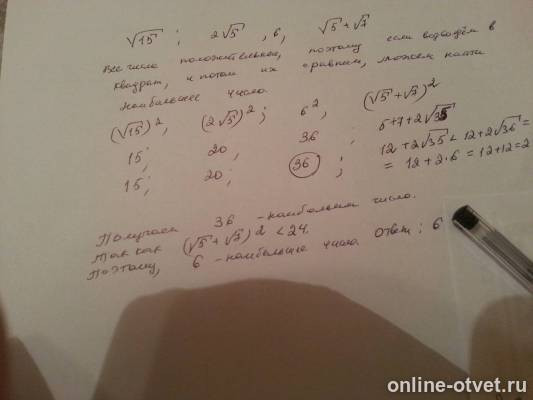 √15 ; 2√5 , 6, √5 + √7
Все числа положительные, поэтому если возведём в
квадрат, и потом их сравним, можем найти
наибольшее число.
(√15)², (2√5)²; 6², (√5+√7)²
15; 20, 36 5+7+2√35
15; 20; 36 ; 12+2√35 < 12+2√36 =
= 12+2·6 = 12+12=2
Получаем 36 - наибольшим число.
Так как (√5+√7)² < 24.
Поэтому, 6 - наибольшее число. Ответ: 6
online-otvet.ru